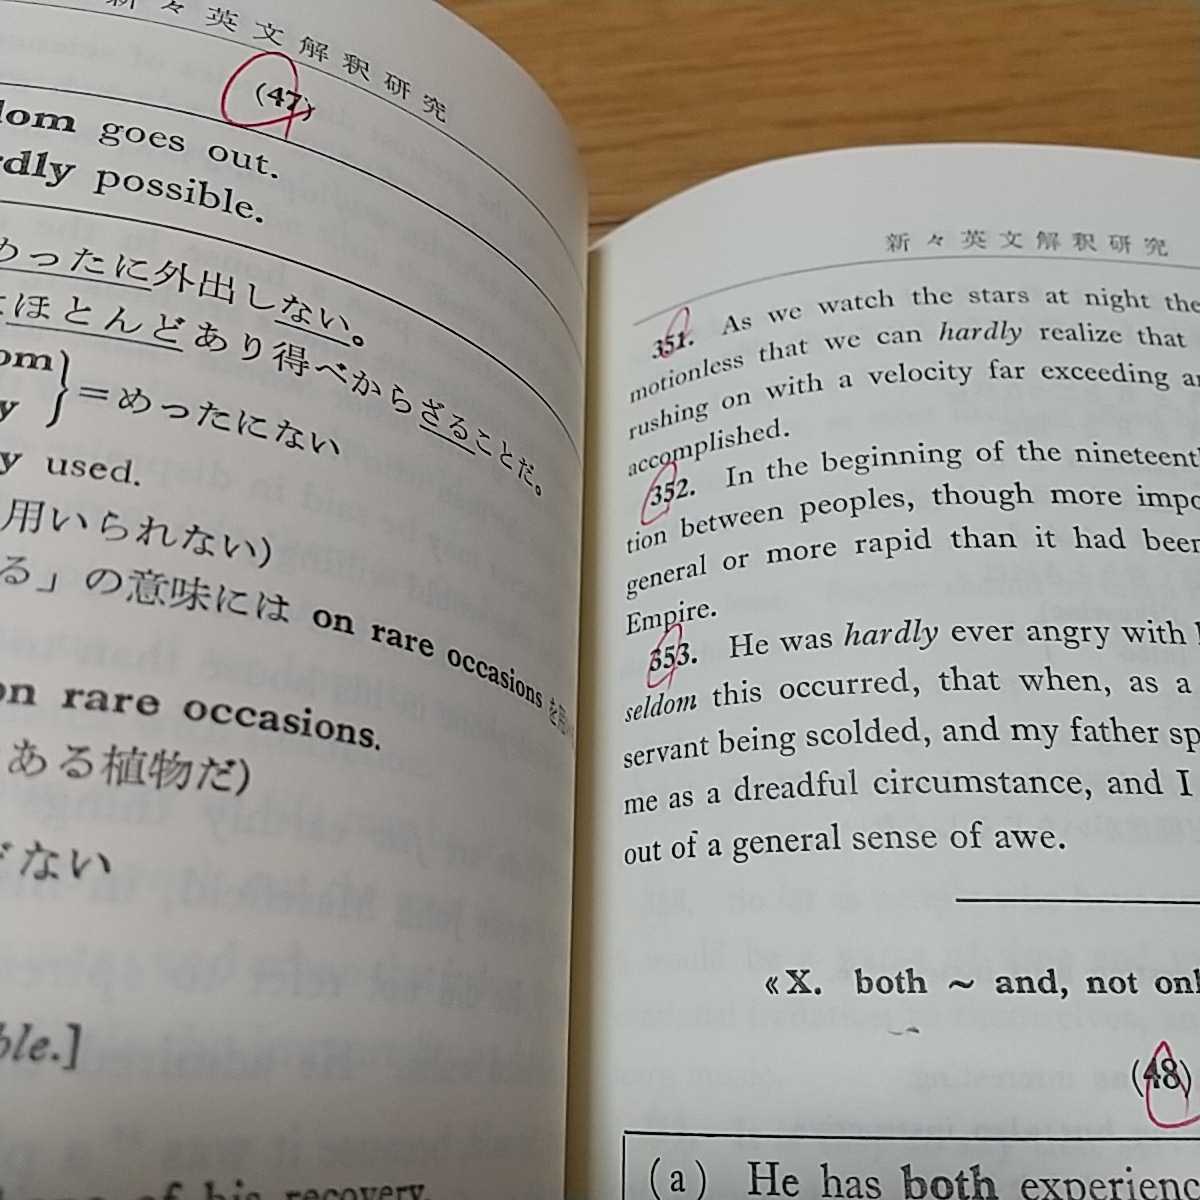 新々英文解釈研究
(47)
goes out.
possible.
めったに外出しない。
ほとんどあり得べからざることだ。
=めったにない
used.
用いられない)
る」の意味には on rare occasions を
on rare occasions.
ある植物だ)
ない
of his recovery.
新々英文解釈研究
351. As we watch the stars at night
motionless that we can hardly realize that
rushing on with a velocity far exceeding
accomplished.
352. In the beginning of the
tion between peoples, though more
general or more rapid than it had been
Empire.
353. He was hardly ever angry with
seldom this occurred, that when, as a
servant being scolded, and my father
me as a dreadful circumstance, and I
out of a general sense of awe.
«X. both ~ and, not
(48)
(a) He has both